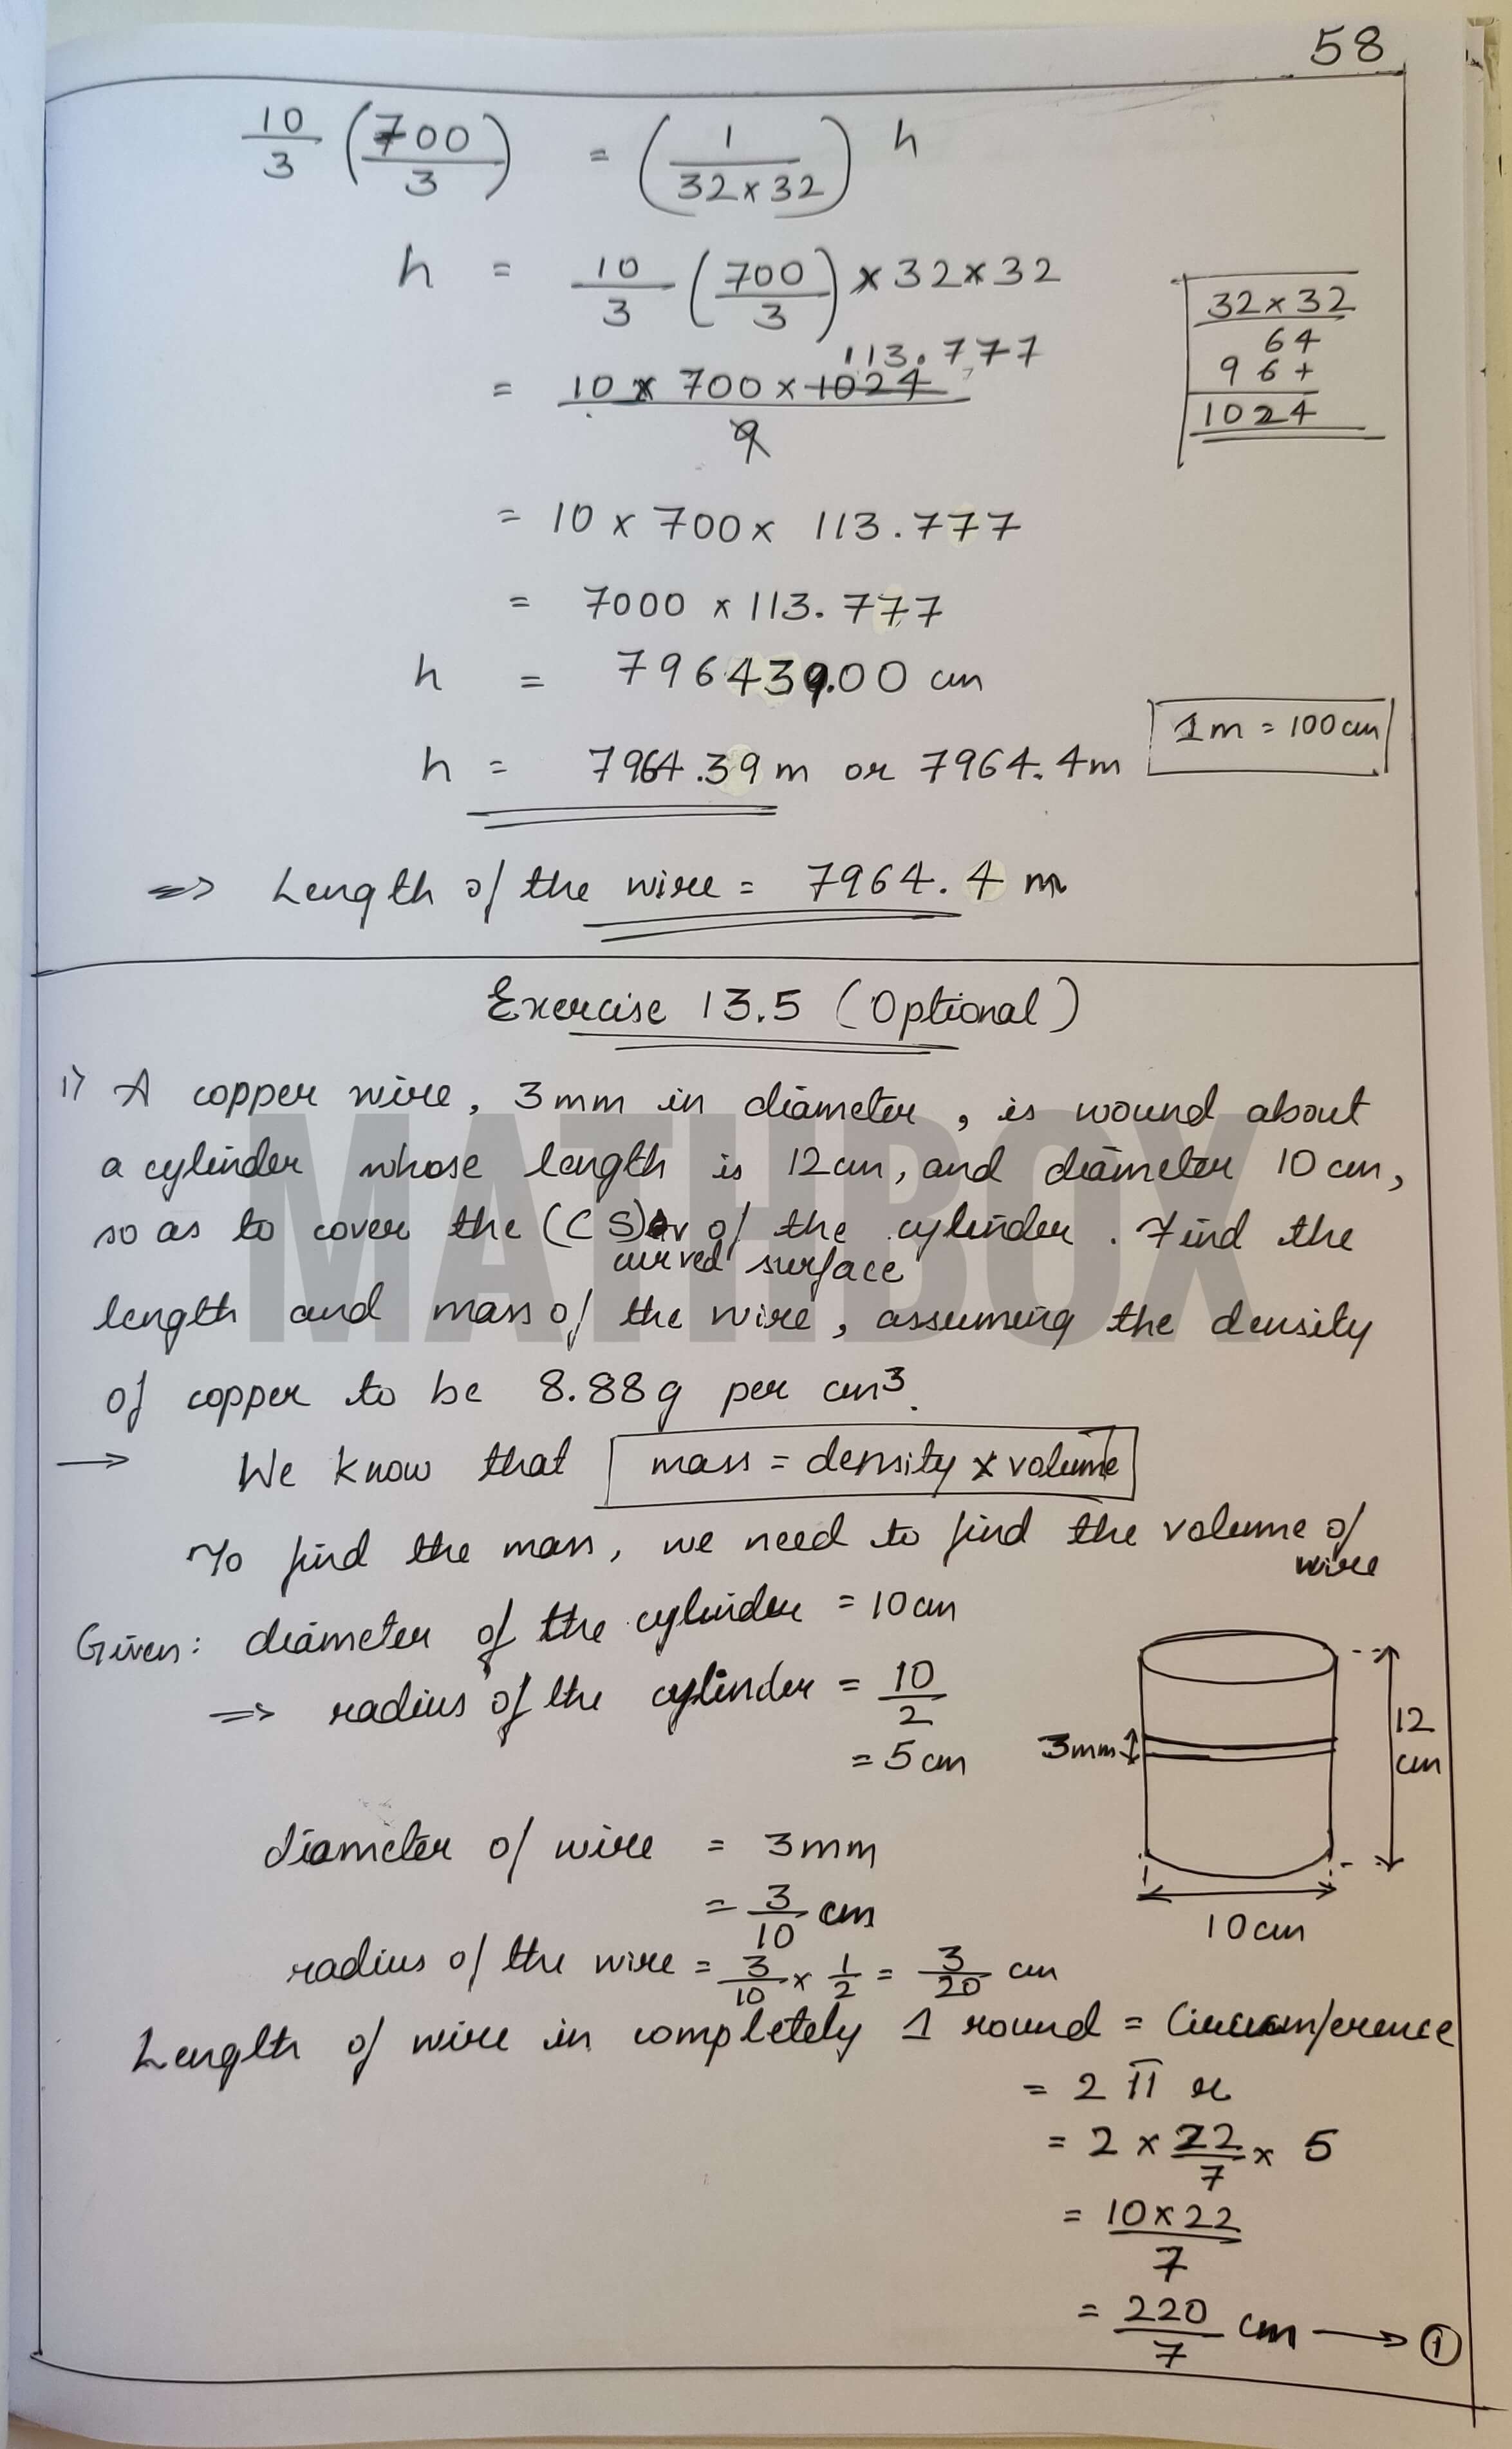 58
10/3 (700/3) = (1/(32×32)) h
h = 10/3 (700/3) × 32×32
113.777
= (10 × 700 × 1024)/9
32×32
64
96+
1024
= 10 × 700 × 113.777
= 7000 × 113.777
h = 796439.00 cm
h = 7964.39 m or 7964.4m
1m = 100cm
=> Length of the wire = 7964.4 m
Exercise 13.5 (Optional)
1) A copper wire, 3mm in diameter, is wound about
a cylinder whose length is 12cm, and diameter 10cm,
so as to cover the (CS) of the cylinder. Find the
curved surface
length and mass of the wire, assuming the density
of copper to be 8.88g per cm³.
→ We know that mass = density × volume
To find the mass, we need to find the volume of
wire
Given: diameter of the cylinder = 10cm
=> radius of the cylinder = 10/2
= 5cm
3mm
12
cm
10cm
diameter of wire = 3mm
= 3/10 cm
radius of the wire = 3/10 × 1/2 = 3/20 cm
Length of wire in completely 1 round = Circumference
= 2 π r
= 2 × 22/7 × 5
= (10×22)/7
= 220/7 cm → ①
MATHBOX